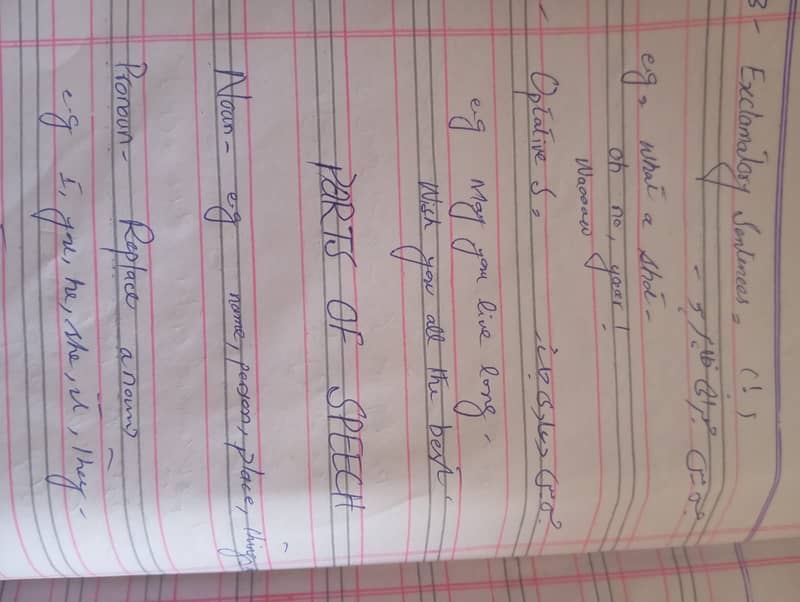 3- Exclamatory Sentences = (!)
e.g, what a shot-
oh no, yaar!
Waooow
Optative S,
e.g May you live long.
Wish you all the best.
PARTS OF SPEECH
Noun- e.g name, person, place, things
Pronoun- Replace a noun
e.g I, you, he, she, it, they-